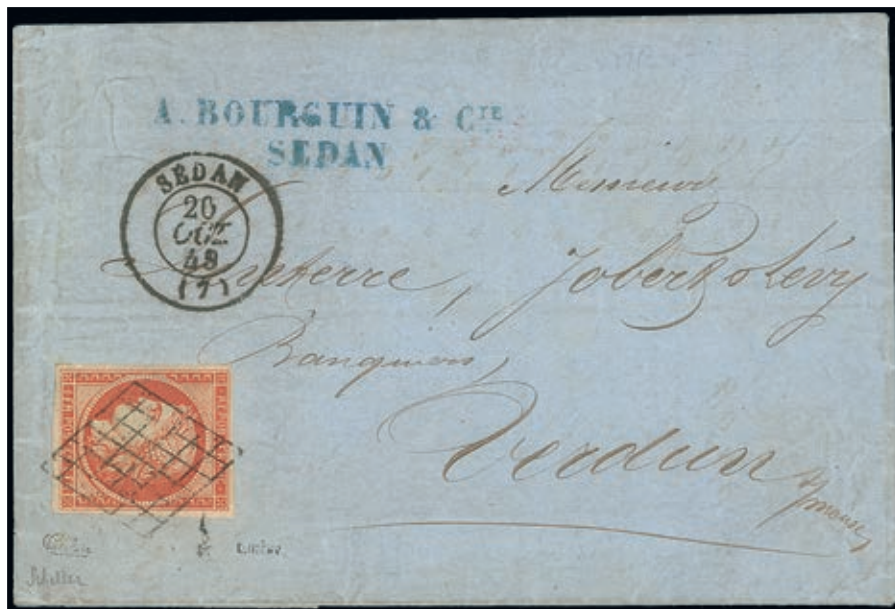 A. BOURGUIN & CIE
SEDAN
SEDAN
20
OCT.
49
(7)
Monsieur
Jobert & Lévy
Banquiers,
Verdun
s/meuse